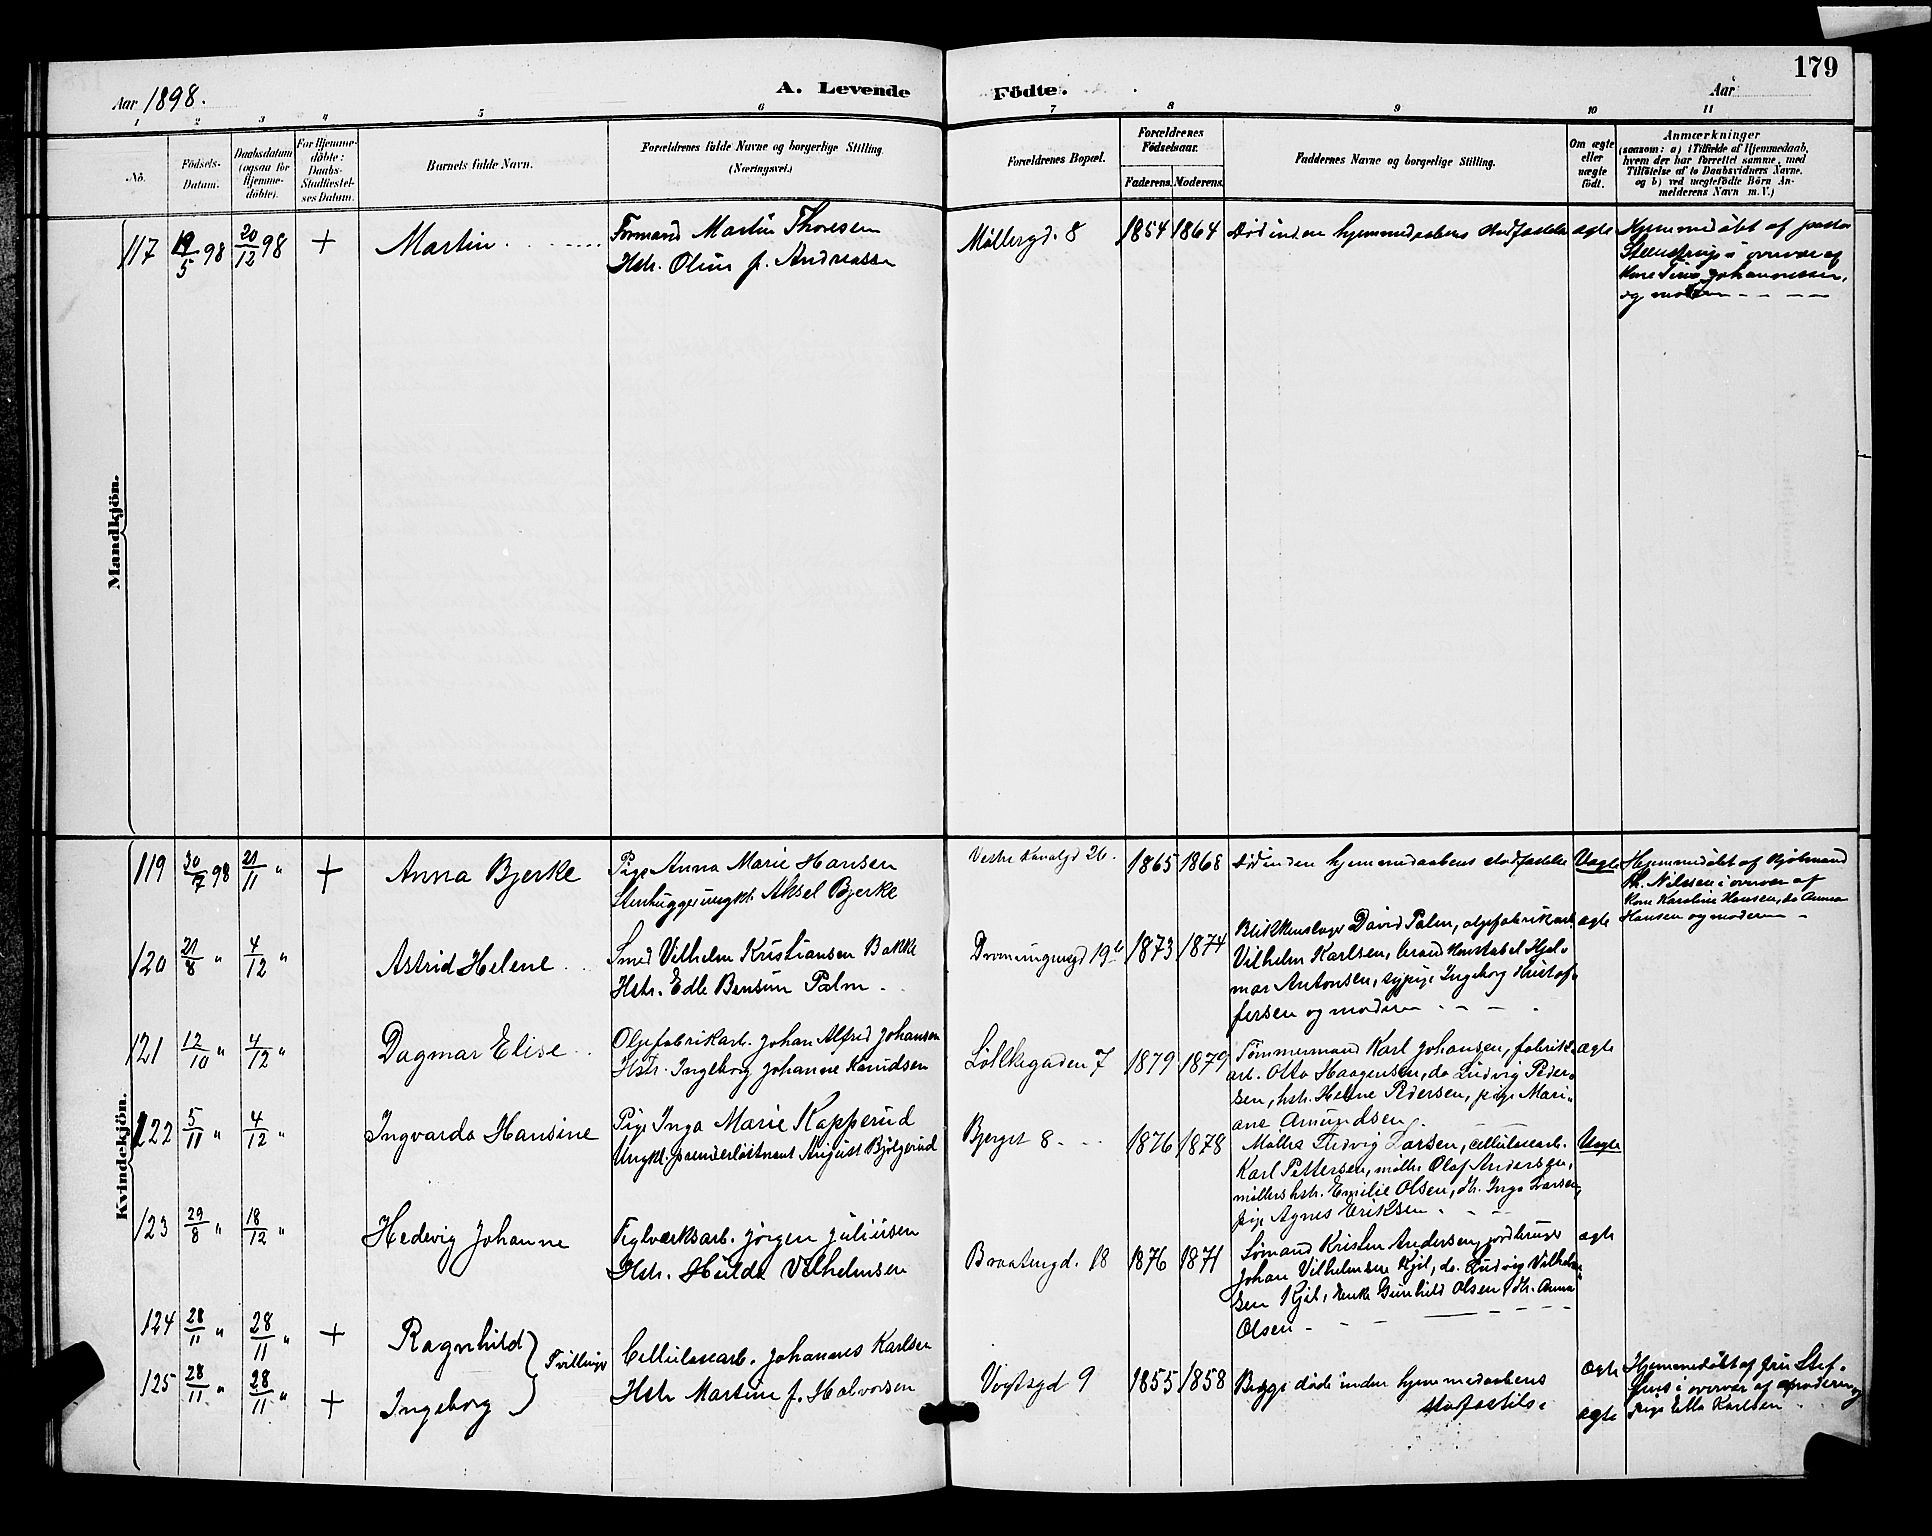 179
Aar 1898.
A. Levende Födte.
Aar
1 2 3 4 5 6 7 8 9 10 11
No.
Födsels-
Datum.
Daabsdatum
(ogsaa for
Hjemme-
döbte).
For Hjemme-
döbte:
Daabs-
Stadfæstel-
ses Datum.
Barnets fulde Navn.
Forældrenes fulde Navne og borgerlige Stilling
(Næringsvei.)
Forældrenes Bopæl.
Forældrenes
Födselsaar.
Faderens. Moderens.
Faddernes Navne og borgerlige Stilling.
Om ægte
eller
uægte
födt.
Anmærkninger
(saasom: a) i Tilfælde af Hjemmedaab,
hvem der har forrettet samme, med
Tilföielse af to Daabsvidners Navne.
og b) ved uægtefödte Börn An-
melderens Navn m. V.)
Mandkjön.
117 19/5 98 20/12 98 + Martin
Formand Martin Thoresen
Hstr. Oline f. Andreassen
Möllergd. 8 1854 1864 Död inden hjemmedaabens stadfæstelse ægte
Hjemmedöbt af pastor
Steenstrup i overvær af
Kone Johannessen,
og moderen
Kvindekjön.
119 30/7 98 21/11 " + Anna Bjerke
Pige Anna Marie Hansen
Stenhuggerungkl. Aksel Bjerke
Vestre Kanalgd 26. 1865 1868 Död inden hjemmedaabens stadfæstelse Uægte
Hjemmedöbt af Kjöbmand
Th. Nilssen i overvær af
Kone Karoline Hansen, do Anna
Hansen og moderen
120 21/8 " 4/12 " Astrid Helene
Smed Vilhelm Kristiansen Bakke
Hstr. Edle Bensine Palm
Dronningensgd 19b 1873 1874
Blikkenslager David Palm, oljefabrikarb.
Vilhelm Karlsen, brandkonstabel Hjal-
mar Antonsen, sypige Ingeborg Kristof-
fersen og moderen
ægte
121 12/10 " 4/12 " Dagmar Elise
Oljefabrikarb. Johan Alfred Johansen
Hstr. Ingeborg Johanne Knudsen
Lökkegaden 7 1879 1879
Tömmermand Karl Johansen, fabrik-
arb. Otto Haagensen, do Ludvig Peder-
sen, hstr. Helene Pedersen, pige Mari-
ane Amundsen
ægte
122 5/11 " 4/12 " Ingvarda Hansine
Pige Inga Marie Kapperud
Ungkl. premierlöitnant August Bjölgerud
Bjerget 8 1876 1878
Möller Ludvig Larsen, cellulosearb.
Karl Pettersen, möller Olaf Andersen,
möllers hstr. Emilie Olsen, do. Inga Larsen,
pige Agnes Eriksen
Uægte
123 29/8 " 18/12 " Hedevig Johanne
Teglværksarb. Jörgen Juliusen
Hstr. Hulda Vilhelmsen
Braatengd. 18 1876 1871
Sömand Kristen Andersen, jordbruger
Johan Vilhelmsen Kjil, do. Ludvig Vilhelm-
sen Kjil, Enke Gunhild Olsen Anna
Olsen
ægte
124 28/11 " 28/11 " + Ragnhild } Tvillinger
125 28/11 " 28/11 " + Ingeborg
Cellulosearb. Johannes Karlsen
Hstr Martine f. Halvorsen
Vogtsgd 9 1855 1858
Begge döde inden hjemmedaabens
stadfæstelse
ægte
ægte
Hjemmedöbt af fru Stef-
fens i overvær af moderen og
pige Ella Karlsen